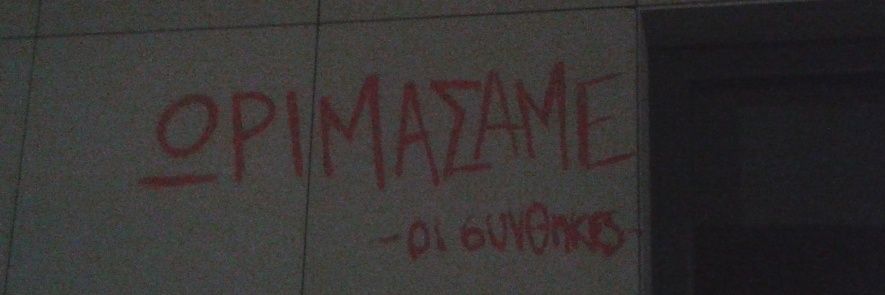 ΩΡΙΜΑΣΑΜΕ
-οι συνθηκες-